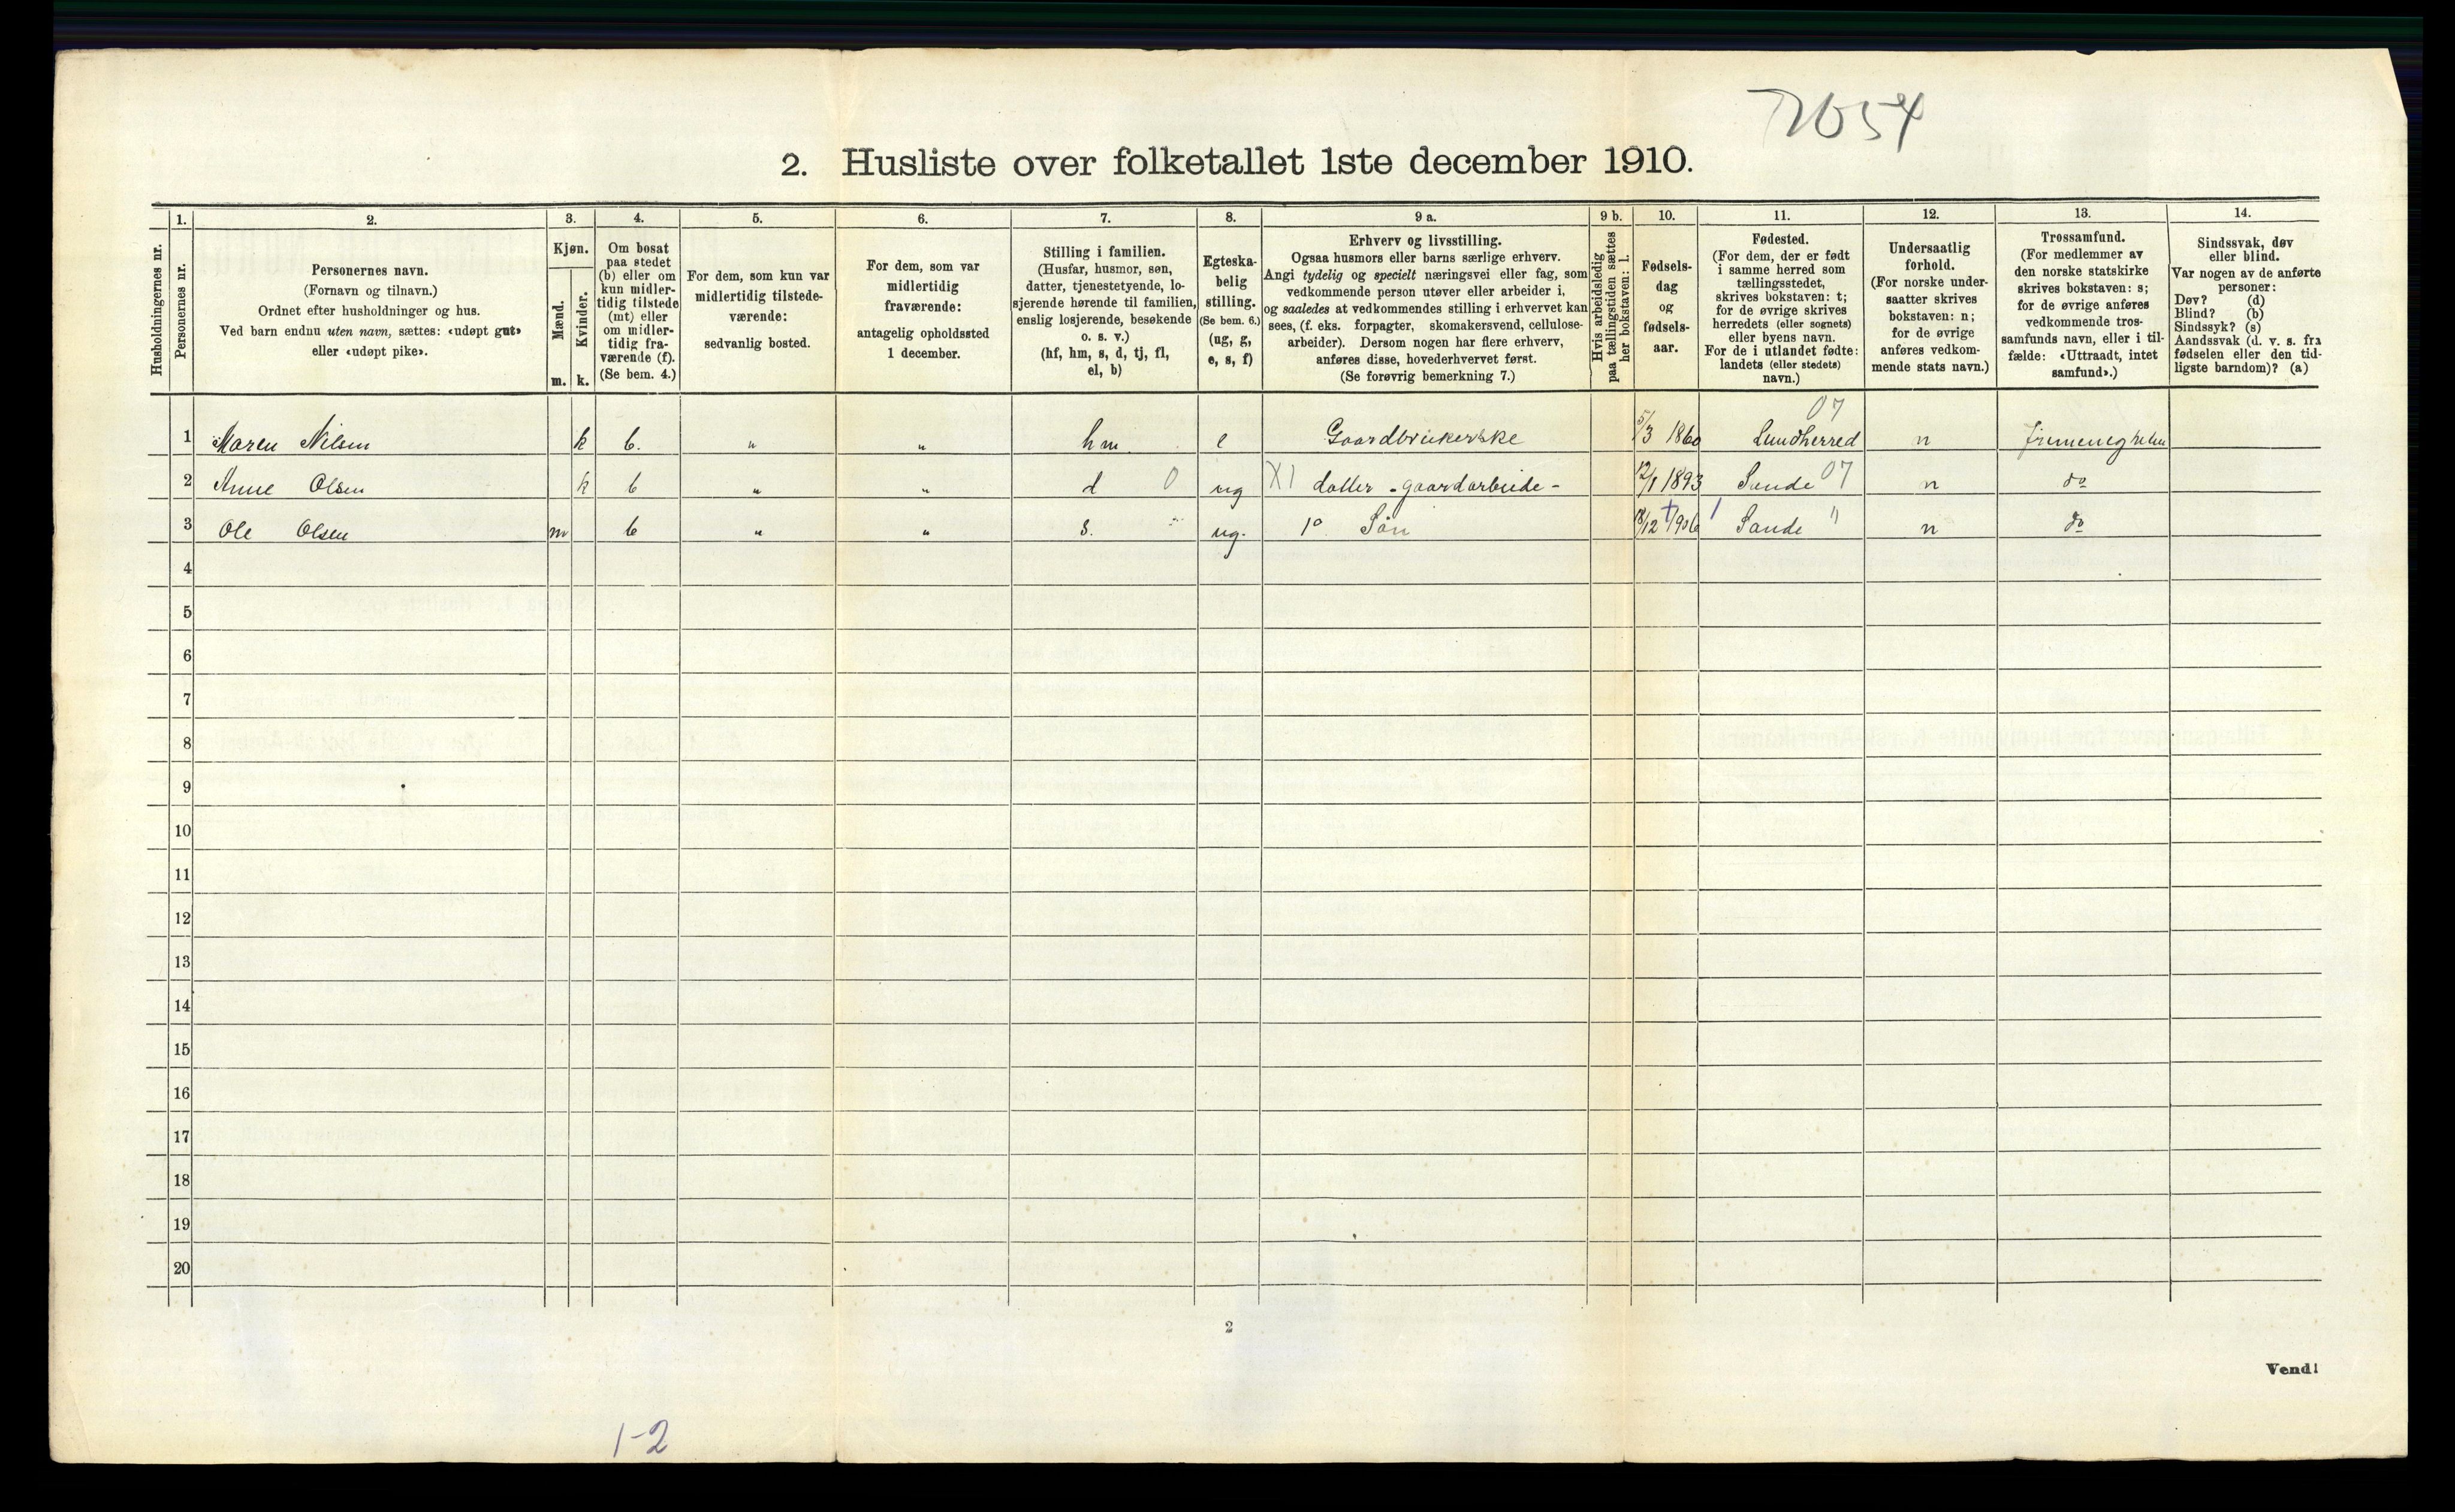 7054
2. Husliste over folketallet 1ste december 1910.
Husholdningernes nr.
1.
Personernes nr.
2.
Personernes navn.
(Fornavn og tilnavn.)
Ordnet efter husholdninger og hus.
Ved barn endnu uten navn, sættes: «udøpt gut»
eller «udøpt pike».
3.
Kjøn.
Mænd.
Kvinder.
m. k.
4.
Om bosat
paa stedet
(b) eller om
kun midler-
tidig tilstede
(mt) eller
om midler-
tidig fra-
værende (f).
(Se bem. 4.)
5.
For dem, som kun var
midlertidig tilstede-
værende:
sedvanlig bosted.
6.
For dem, som var
midlertidig
fraværende:
antagelig opholdssted
1 december.
7.
Stilling i familien.
(Husfar, husmor, søn,
datter, tjenestetyende, lo-
sjerende hørende til familien,
enslig losjerende, besøkende
o. s. v.)
(hf, hm, s, d, tj, fl,
el, b)
8.
Egteska-
belig
stilling.
(Se bem. 6.)
(ug, g,
e, s, f)
9 a.
Erhverv og livsstilling.
Ogsaa husmors eller barns særlige erhverv.
Angi tydelig og specielt næringsvei eller fag, som
vedkommende person utøver eller arbeider i,
og saaledes at vedkommendes stilling i erhvervet kan
sees, (f. eks. forpagter, skomakersvend, cellulose-
arbeider). Dersom nogen har flere erhverv,
anføres disse, hovederhvervet først.
(Se forøvrig bemerkning 7.)
9 b.
Hvis arbeidsledig
paa tællingstiden sættes
her bokstaven: l.
10.
Fødsels-
dag
og
fødsels-
aar.
11.
Fødested.
(For dem, der er født
i samme herred som
tællingsstedet,
skrives bokstaven: t;
for de øvrige skrives
herredets (eller sognets)
eller byens navn.
For de i utlandet fødte:
landets (eller stedets)
navn.)
12.
Undersaatlig
forhold.
(For norske under-
saatter skrives
bokstaven: n;
for de øvrige
anføres vedkom-
mende stats navn.)
13.
Trossamfund.
(For medlemmer av
den norske statskirke
skrives bokstaven: s;
for de øvrige anføres
vedkommende tros-
samfunds navn, eller i til-
fælde: «Uttraadt, intet
samfund».)
14.
Sindssvak, døv
eller blind.
Var nogen av de anførte
personer:
Døv? (d)
Blind? (b)
Sindssyk? (s)
Aandssvak (d. v. s. fra
fødselen eller den tid-
ligste barndom)? (a)
07
1 Maren Nilsen k b. " " hm. e Gaardbrukerske 5/3 1860 Lundherred n
2 Anne Olsen k b " " d 0 ug X1 datter - gaardarbeide - 12/1 1893 Sande 07 n do
3 Ole Olsen m b " " s. ug. 1o Sön 18/12 1906 Sande " n do
4
5
6
7
8
9
10
11
12
13
14
15
16
17
18
19
20
2
Vend!
1-2